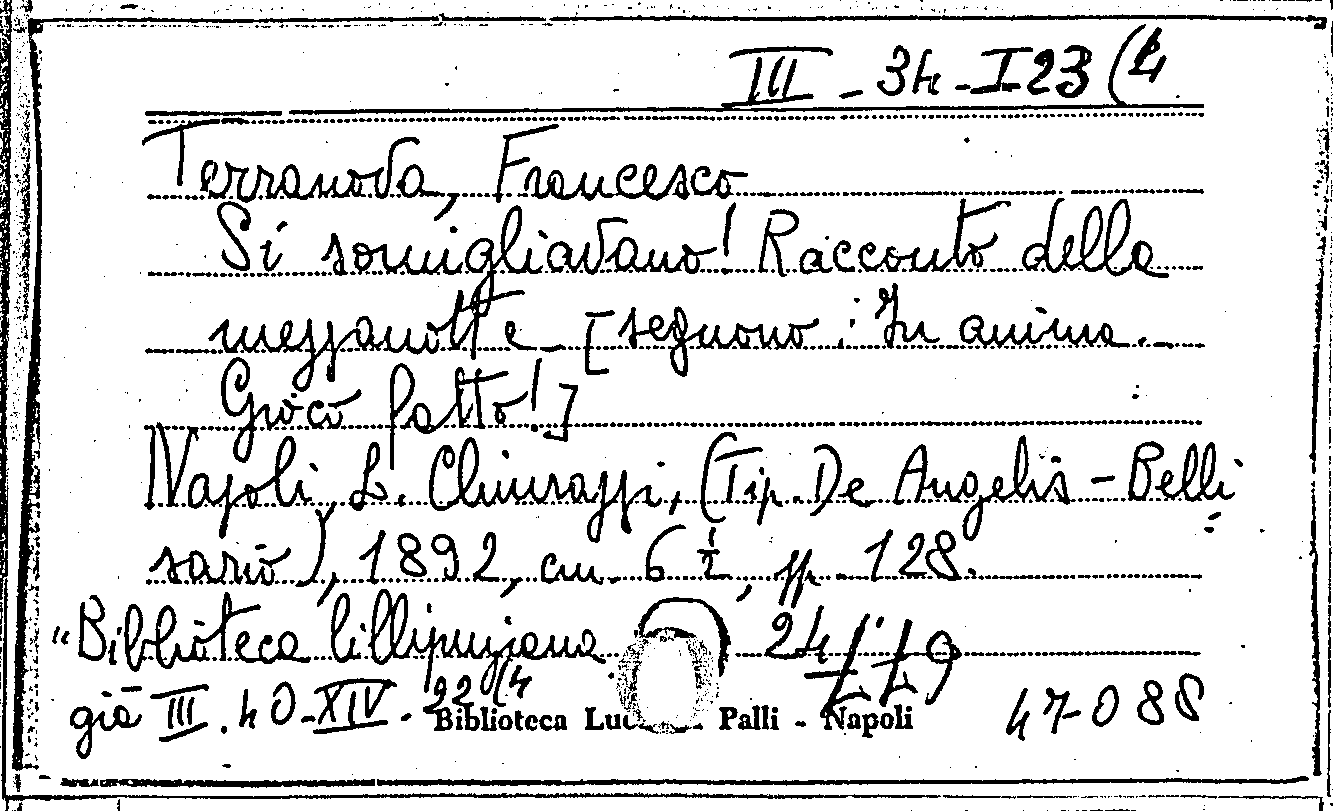 III - 34 - I 23 (4
Terranova, Francesco
Si somigliavano! Racconto della
mezzanotte [seguono: In anima.
Gioco fatto!]
Napoli, L. Chiurazzi, (Tip. De Angelis - Belli
sario), 1892, cm. 6 ½, pp. 128.
"Biblioteca lillipuziana
già III. 40 - XIV. 22 (4
Biblioteca Palli - Napoli
47088